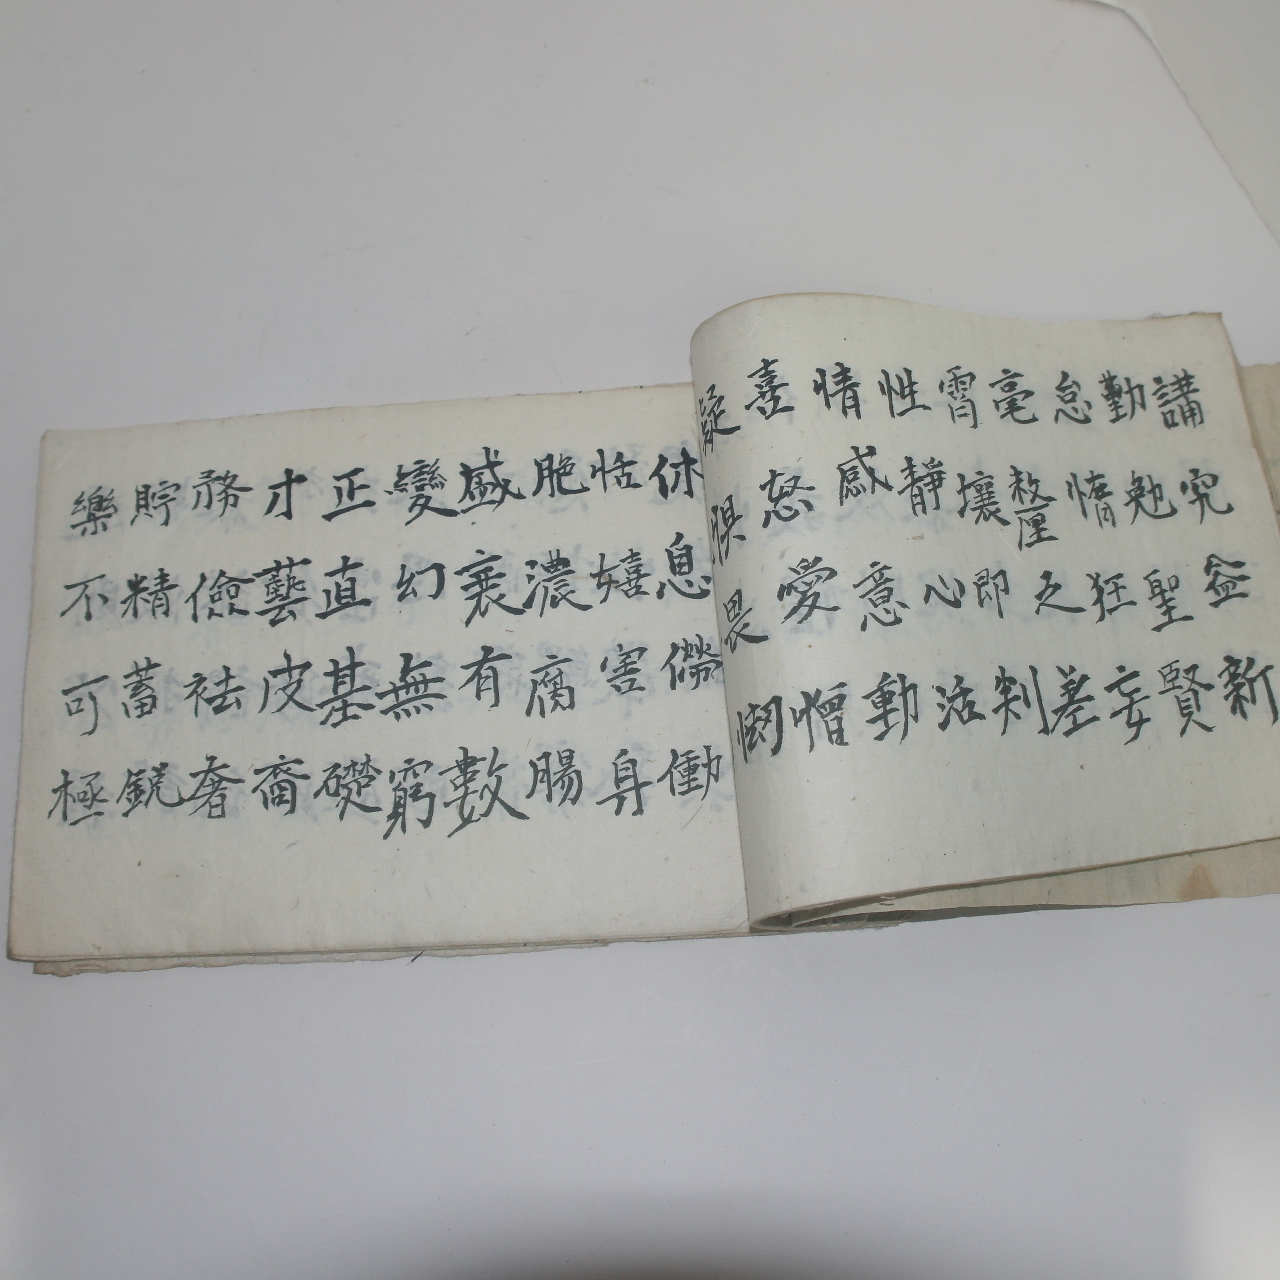 講究益新
勤勉聖賢
怠惰狂妄
毫釐之差
霄壤即判
性靜心活
情感意動
喜怒愛憎
疑惧畏
休息勞働
恬嬉害身
肥濃腐腸
盛衰有數
變幻無窮
正直基礎
才藝皮裔
務儉袪奢
貯精蓄銳
樂不可極